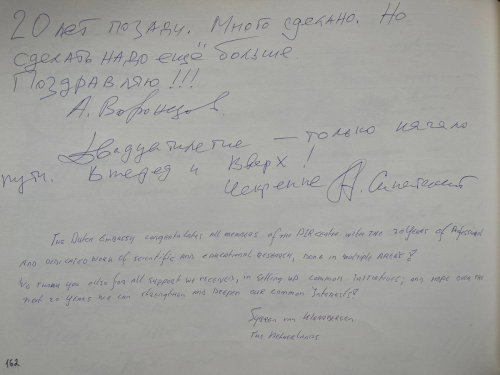 20 лет позади. Много сделано. Но
сделать надо ещё больше.
Поздравляю!!!
А. Воронцов
Двадцатилетие – только начало
пути. Вперед и вверх!
Искренне А.
The Dutch Embassy congratulates all members of the center with the 20 years of Professional
and dedicated work of scientific and educational research, done in multiple areas!
We thank you also for all support we received, in setting up common initiatives, and hope over the
next 20 years we can strengthen and deepen our common interests!
van
The Netherlands
162